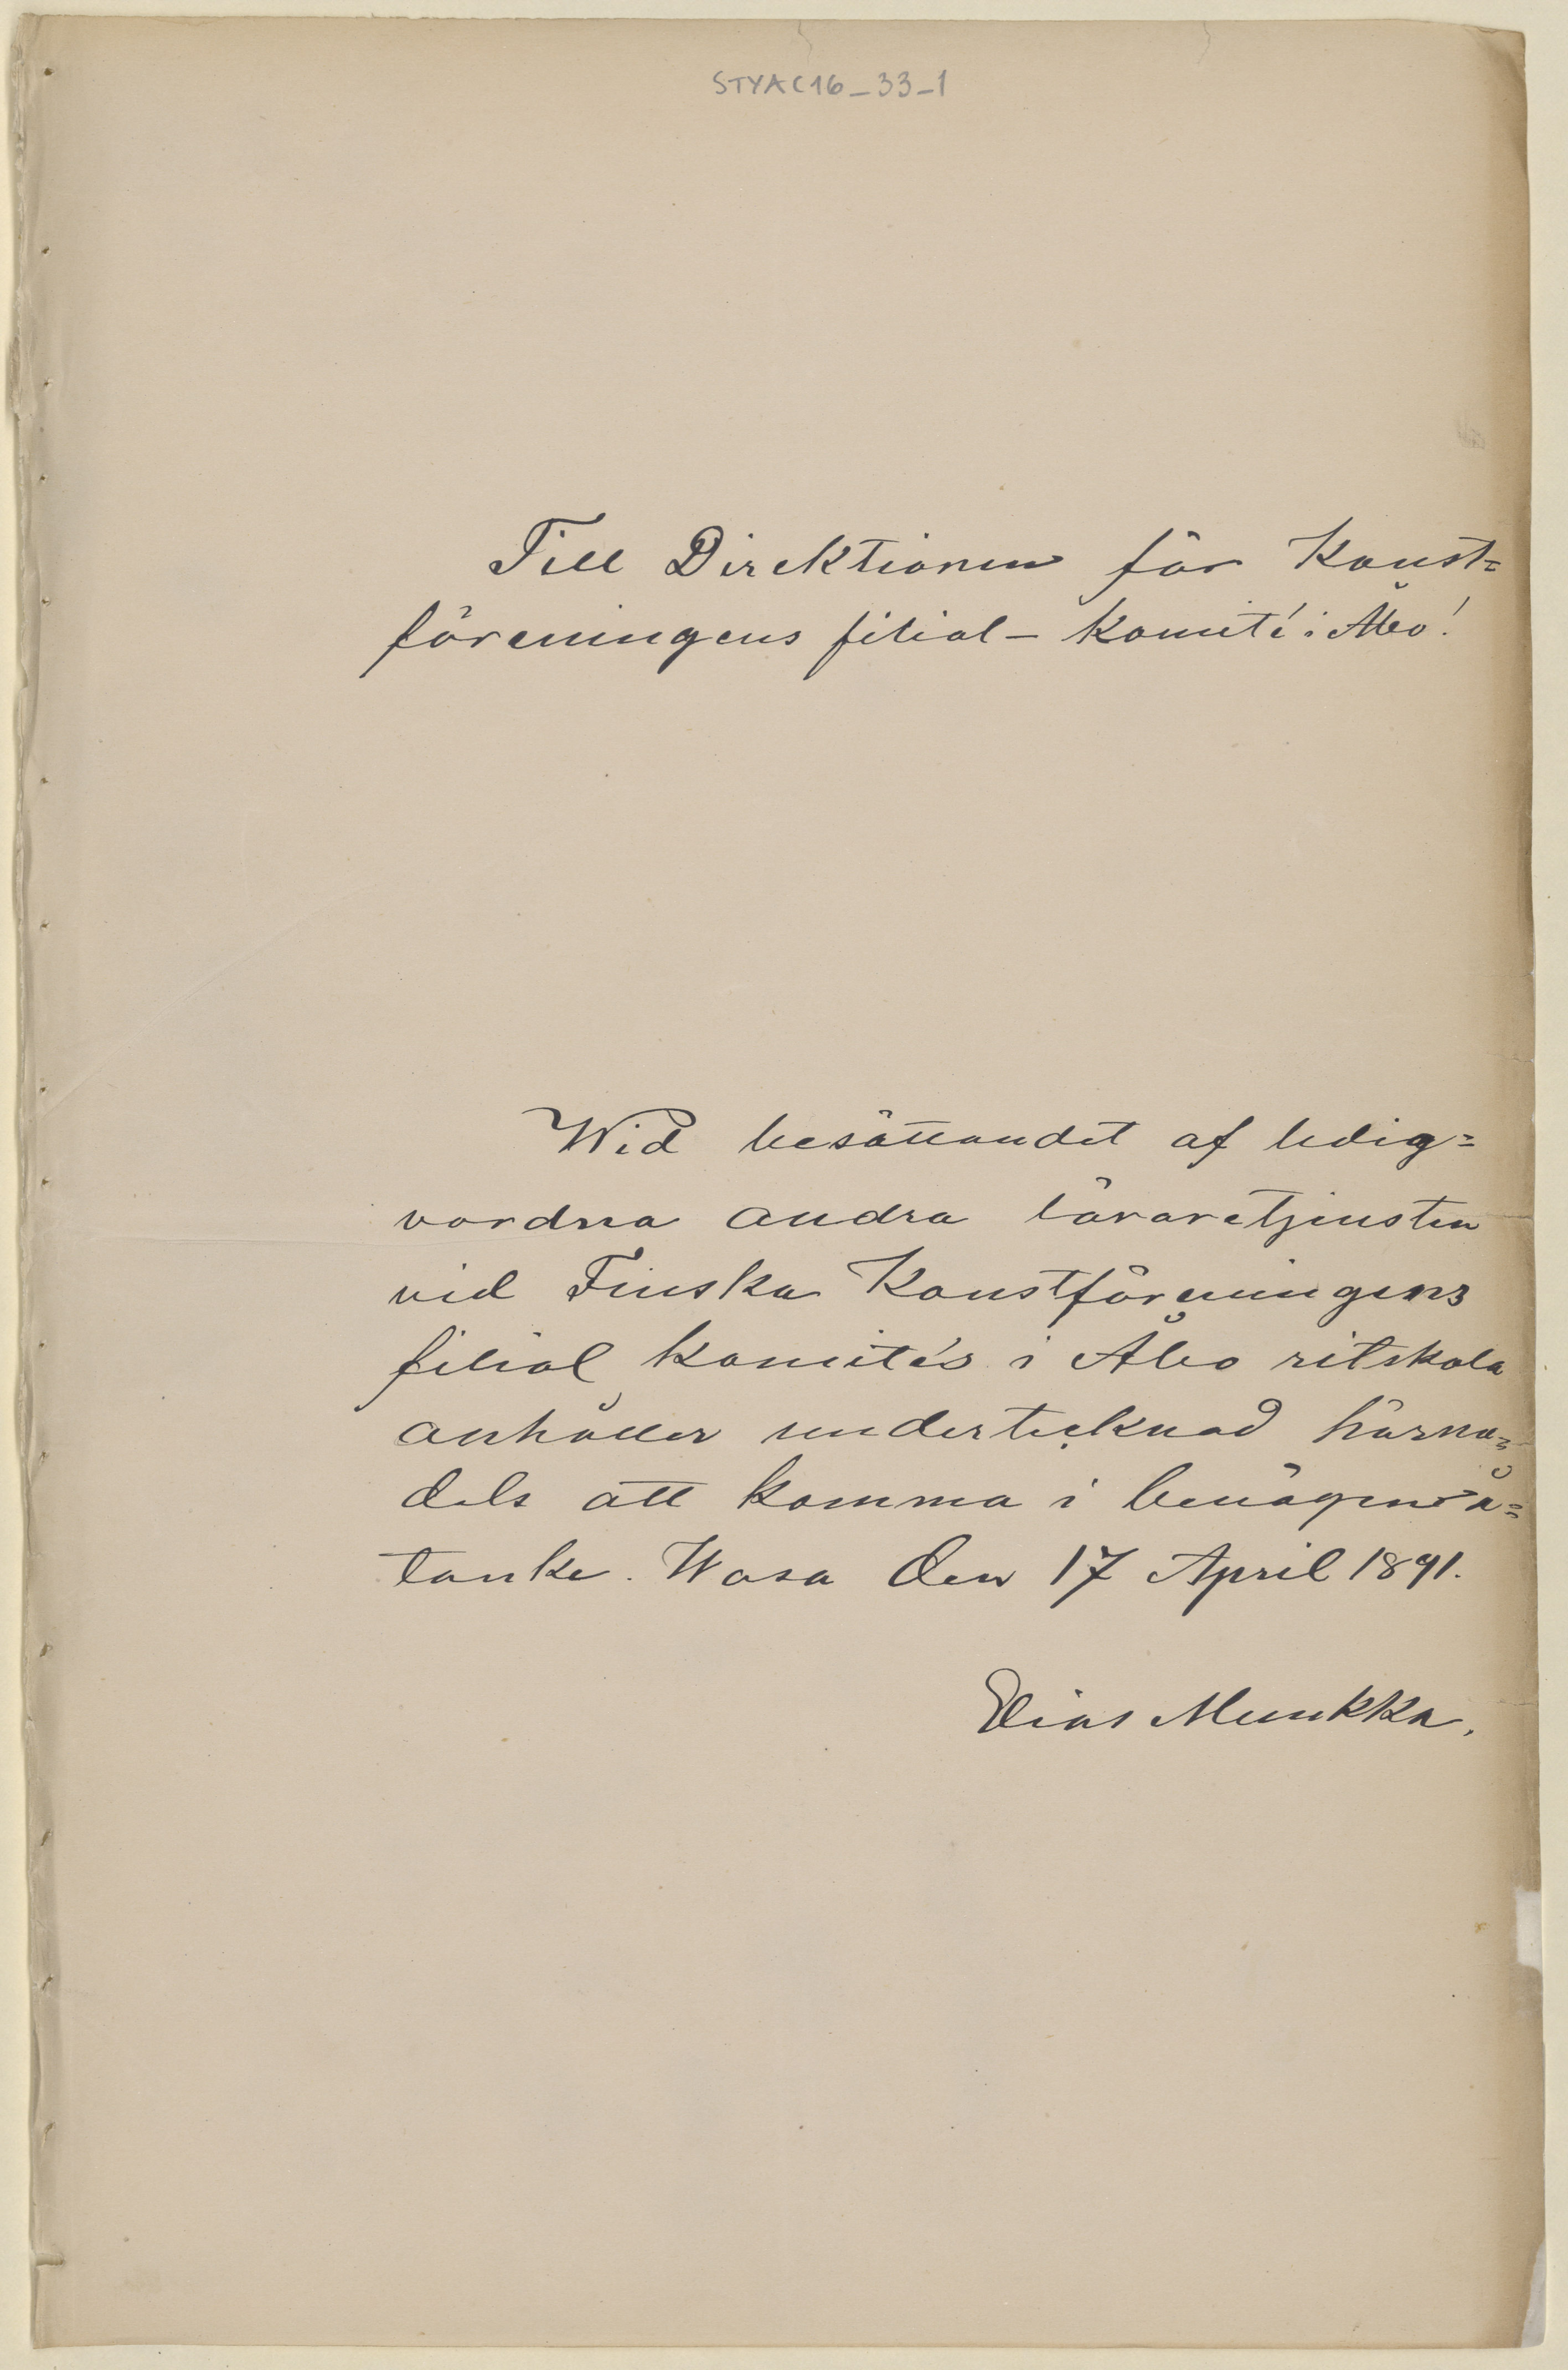 STYAC16_33_1
Till Direktionen för Konst=
föreningens filial- komité i Åbo!
Wid besättandet af ledig=
vordna andra läraretjensten
vid Finska Konstföreningens
filial komité's i Åbo ritskola
anhåller undertecknad härme=
dels att komma i benägen å=
tanke. Wasa den 17 April 1891.
Elias Muukka.